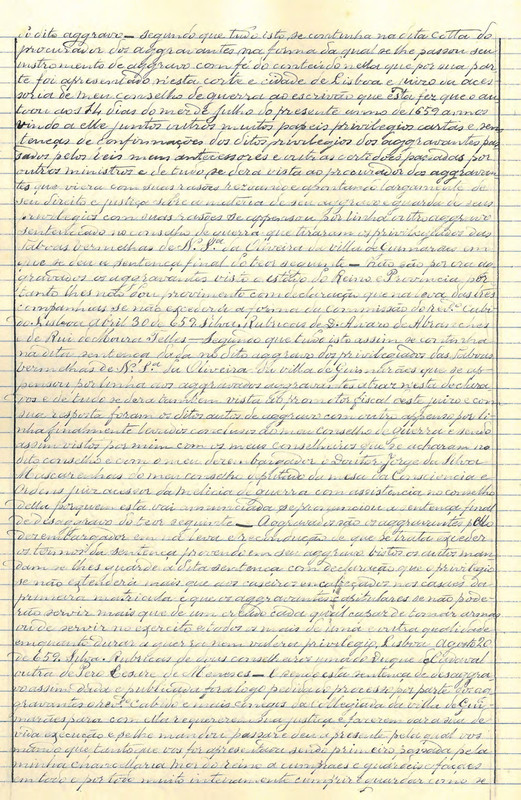 o dito aggravo — segundo que tudo isto, se continha na dita cotta do
procurador dos aggravantes na forma da qual se lhe passou seu
instromento de aggravo com fé do conteudo nella que por sua par
te foi apresentado nesta corte e cidade de Lisboa e juizo da aces
soria de meu conselho de guerra ao escrivão que esta fez que o au
tuou aos 14 dias do mez de Julho do presente anno de 1659 annos
vindo a elle juntos outros muitos papeis privilegios cartas e sen
tenças de confirmações dos ditos privilegios dos aggravantes pas
sados pelos reis meus antecessores e outras certidões passadas por
outros ministros e de tudo se dera vista ao procurador dos aggravan
tes que viera com suas rasões rezando e apontando largamente de
seu direito e justiça sobre a materia de seu aggravo e guarda de seus
privilegios com suas rasões se appensou por linha outro aggravo
sentenciado no conselho de guerra que tiraram os privilegiados das
taboas vermelhas de N. Snra. da Oliveira da villa de Guimarães em
que se deu a sentença final do teor seguinte — Não são por ora ag
gravados os aggravantes visto o estado do Reino e Provincia, por
tanto lhes não dou provimento com declaração que na leva das tres
companhias se não excederá a forma da commissão do rev. Cabi
do. Lisboa Abril 30 de 659. Silva. Rubricas de D. Alvaro de Abranches
e de Rui de Moura Telles — Segundo que tudo isto assim se continha
na dita sentença dada no dito aggravo dos privilegiados das taboas
vermelhas de N. Sra. da Oliveira da villa de Guimarães que se ap
pensou por linha aos aggravados aggravantes atraz nesta declara
dos e de tudo se dera tambem vista ao promotor fiscal deste juizo e com
sua resposta foram os ditos autos de aggravo com outro appenso por li
nha finalmente levados conclusos ao meu conselho de Guerra e sendo
assim vistos por mim com os meus conselheiros que se acharam no
dito conselho e com o meu dezembargador o Doutor Jorge da Silva
Mascarenhas do meu conselho deputado da mesa da Consciencia e
Ordens juiz acessor da melicia de guerra com assistencia no conselho
della porquem esta vai assignada se pronunciou a sentença final
de desaggravo do teor seguinte — Aggravados são os aggravantes pelo
dezembargador em na leva e reconducção de que se trata exceder
os termos da sentença provendo em seu aggravo vistos os autos man
dam se lhes guarde a dita sentença com declaração que o privilegio
se não extenderá mais que aos caseiros encabeçados nos casaes da
primeira matricula e que os aggravantes capitulares se não pode
rão servir mais que de um creado cada qual capaz de tomar armas
ou de servir no exercito e todos os mais de uma e outra qualidade
emquanto durar a guerra sem valer o privilegio. Lisboa Agosto 20
de 659. Silva. Rubricas de meus conselheiros uma do Duque Cadaval
outra de Pero Cesar de Menezes — E sendo esta sentença de desaggra
vo assim dada e publicada fora logo pedida em processo por parte dos ag
gravantes o rev. Cabido e mais conegos da Collegiada da villa de Gui
marães para com ella requererem sua justiça e fazerem dar a sua de
vida execução e se lhe mandou passar e deu a presente pela qual vos
mando que tanto que vos for apresentada sendo primeiro passada pela
minha chancellaria mór do reino a cumpraes e guardeis e façaes
em todo e por todo muito inteiramente cumprir e guardar como se